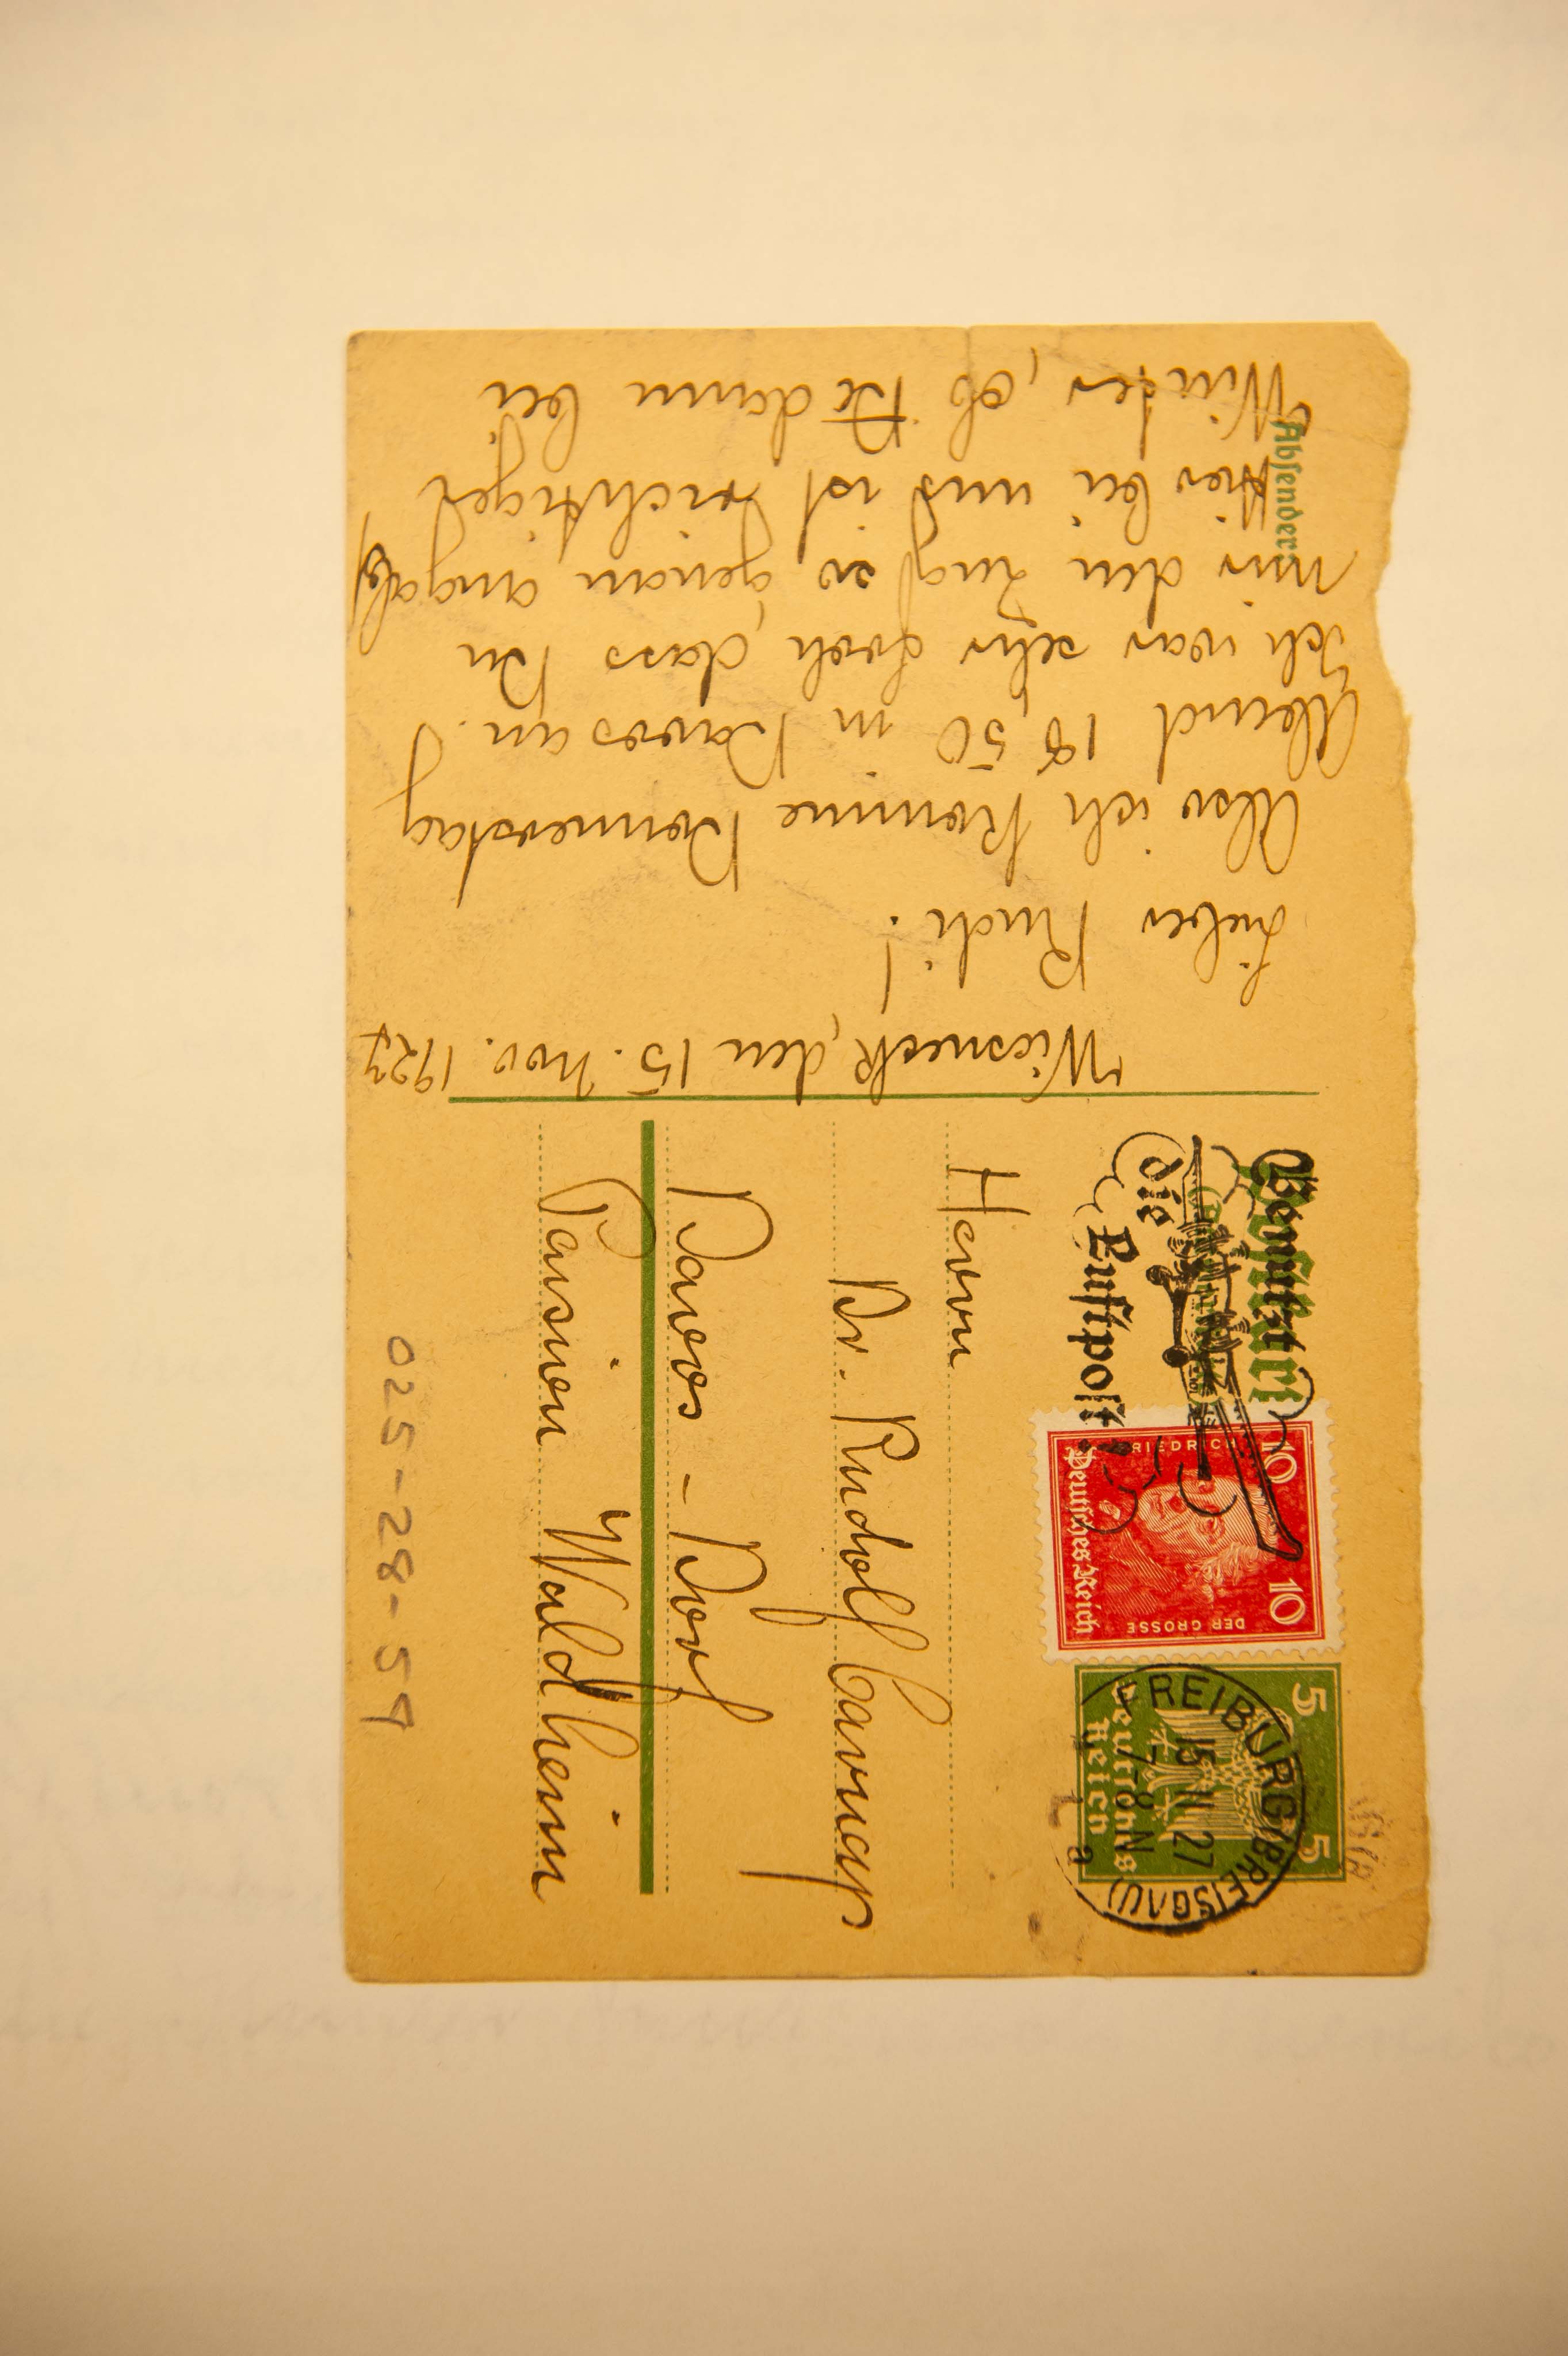 Wiesneck, den 15. Nov. 1927
Lieber Rudi!
Also ich komme Donnerstag
Abend 18,50 in Davos an.
Ich war sehr froh, dass Du
mir den Zug so genau angabst
Hier bei uns ist richtiger
Winter, ob Du dann bei
Absender:
Postkarte
Benutzt
die
Luftpost!
10 10
FRIEDRICH DER GROSSE
Deutsches Reich
5 5
Deutsches
Reich
FREIBURG (BREISGAU)
15.11.27
7-8 N
a
Herrn
Dr. Rudolf Carnap
Davos - Dorf
Pension Waldheim
025-28-59